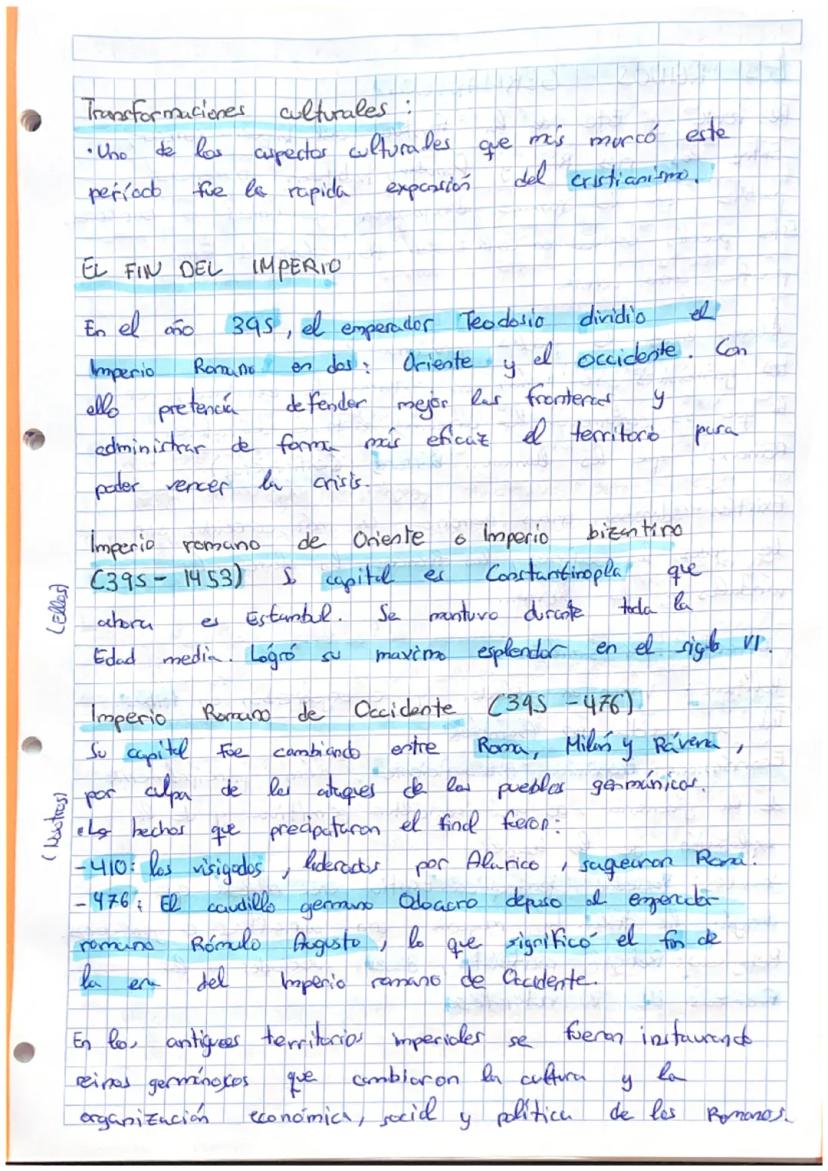 Transformaciones culturales :
• Uno de los aspectos culturales que más marcó este
períod fue la rapida expansión del cristianismo.
EL FIN DEL IMPERIO
En el año 395, el emperador Teodosio dividio el
Imperio Romano en dos: Oriente y el occidente. Con
ello pretencía defender mejor las fronteras y
administrar de forma más eficaz el territorio para
poder vencer la crisis.
Imperio romano de Oriente o Imperio bizantino
(395 - 1453) S capital es Constantinopla que
ahora es Estambul. Se mantuvo durante toda la
(Ellos)
Edad media. Logró su maximo esplendor en el siglo VI.
Imperio Romano de Occidente (395 - 476)
Su capital fue cambiando entre Roma, Milán y Rávena,
por culpa de los ataques de los pueblos germánicos.
(Nosotros)
•Los hechos que precipataron el final fueron:
- 410: los visigodos, liderados por Alarico, saquearon Roma.
- 476: El caudillo germano Odoacro depuso al emperador
romano Rómulo Augusto, lo que significó el fin de
la era del Imperio romano de Occidente.
En los antigues territorios imperiales se fueron instaurando
reinos germánocos que cambiaron la cultura y la
organización económica, social y política de los Romanos.